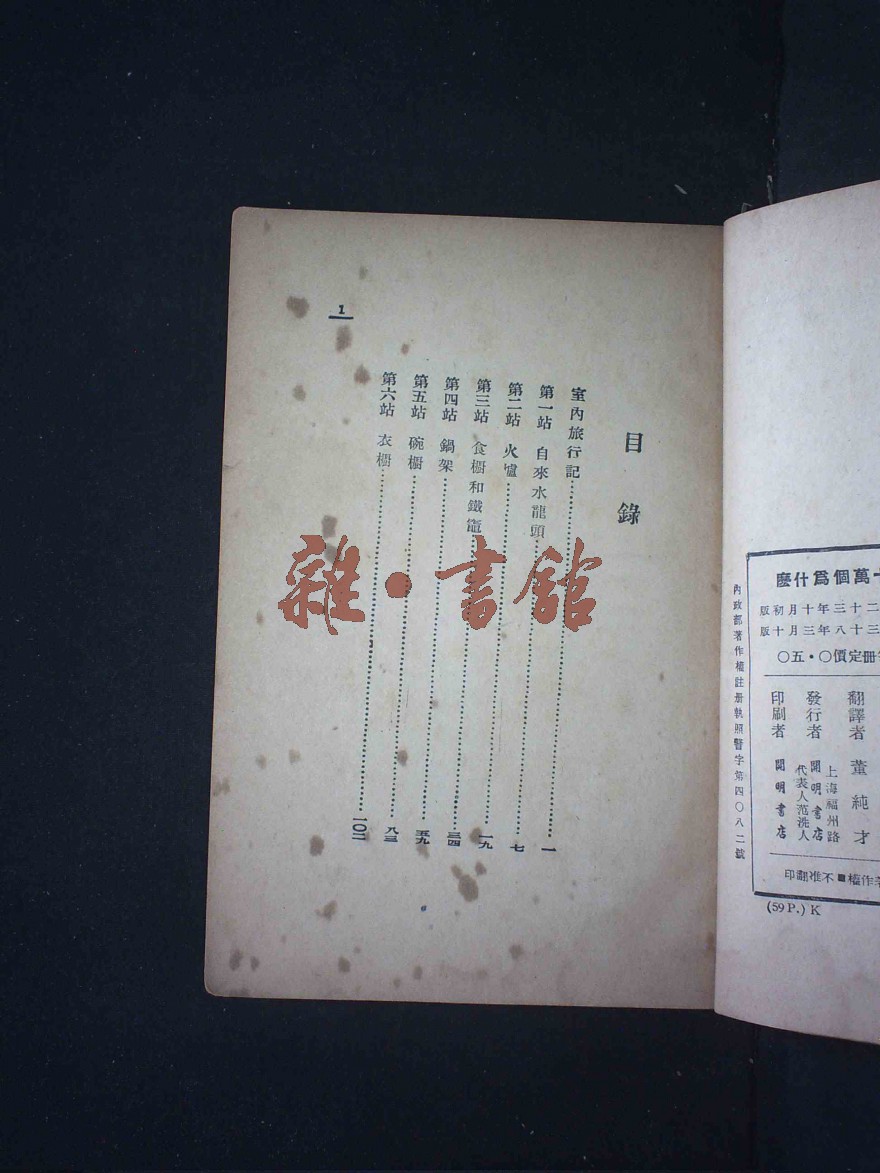 十萬個爲什麼
二十三年十月初版
三十八年三月十版
冊定價○·五○
翻譯者 董純才
發行者 開明書店
上海福州路
代表人范洗人
印刷者 開明書店
作權■不准翻印
(59 P.) K
內政部著作權註冊執照警字第四〇八二號
目錄
室內旅行記……一
第一站 自來水龍頭……七
第二站 火爐……一九
第三站 食櫥和鐵竈……三四
第四站 鍋架……五九
第五站 碗櫥……八三
第六站 衣櫥……一〇二
1
雜·書館